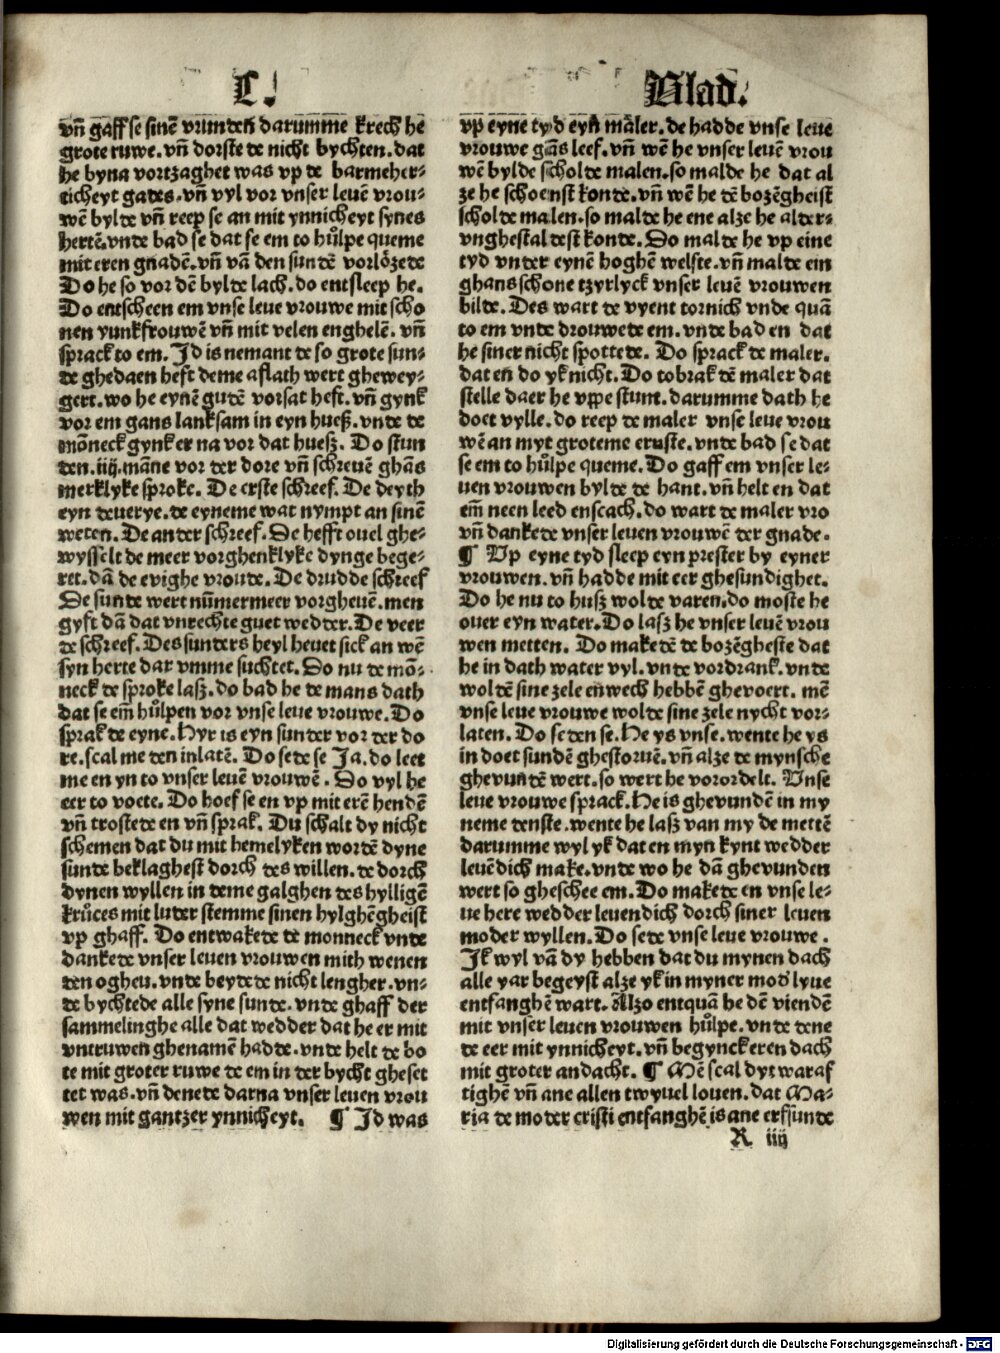 C.
Blad.
vn̄ gaff se sinē vrunden darumme krech he
grote ruwe. vn̄ dorste de nicht bychten. dat
he byna vortzaghet was vp de barmeher-
ticheyt gades. vn̄ vyl vor vnser leuē vrou-
wē bylde vn̄ reep se an mit ynnicheyt synes
hertē. vnde bad se dat se em to hůlpe queme
mit eren gnadē. vn̄ vā den sundē vorlözede
Do he so vor dē bylde lach. do entsleep he.
Do entscheen em vnse leue vrouwe mit scho
nen yunkfrouwē vn̄ mit velen enghelē. vn̄
sprack to em. Jd is nemant de so grote sun-
de ghedaen heft deme aflath wert ghewey-
gert. wo he eynē gutē vorsat heft. vn̄ gynk
vor em gans lanksam in eyn hueß. vnde de
mōneck gynk er na vor dat hueß. Do stun
den .iiij. māne vor der dore vn̄ schreuē ghās
merklyke sproke. De erste schreef. De deyth
eyn deuerye. de eyneme wat nympt an sinē
weten. De ander schreef. De hefft ouel ghe-
wysselt de meer vorghenklyke dynge bege-
ret. dā de evighe vroude. De drudde schreef
De sunde wert nūmermeer vorgheuē. men
gyft dā dat vnrechte guet wedder. De veer
de schreef. Des sunders heyl heuet sick an wē
syn herte dar vmme suchtet. Do nu de mō-
neck de sproke lasz. do bad he de mans dath
dat se em̄ hůlpen vor vnse leue vrouwe. Do
sprak de eyne. Hyr is eyn sunder vor der do
re. scal me den inlatē. Do sede se Ja. do leet
me en yn to vnser leuē vrouwē. Do vyl he
eer to voete. Do hoef se en vp mit erē hendē
vn̄ trostede en vn̄ sprak. Du schalt dy nicht
schemen dat du mit hemelyken wordē dyne
sunde beklaghest dorch des willen. de dorch
dynen wyllen in deme galghen des hylligē
krůces mit luder stemme sinen hylghēgheist
vp ghaff. Do entwakede de monneck vnde
dankede vnser leuen vrouwen mith wenen
den ogheu. vnde beydede nicht lengher. vn-
de bychtede alle syne sunde. vnde ghaff der
sammelinghe alle dat wedder dat he er mit
vntruwen ghenamē hadde. vnde helt de bo
te mit groter ruwe de em in der bycht gheset
tet was. vn̄ denede darna vnser leuen vrou
wen mit gantzer ynnicheyt. ¶ Jd was
vp eyne tyd eyn māler. de hadde vnse leue
vrouwe gās leef. vn̄ wē he vnser leuē vrou
wē bylde scholde malen. so malde he dat al
ze he schoenst konde. vn̄ wē he dē bozēgheist
scholde malen. so malde he ene alze he alder-
vnghestaldest konde. Do malde he vp eine
tyd vnder eynē hoghē welfte. vn̄ malde ein
ghans schone tzyrlyck vnser leuē vrouwen
bilde. Des wart de vyent tornich vnde quā
to em vnde drouwede em. vnde bad en dat
he siner nicht spottede. Do sprack de maler.
dat en̄ do yk nicht. Do tobrak dē maler dat
stelle daer he vppe stunt. darumme dath he
doet vylle. do reep de maler vnse leue vrou
wē an myt groteme eruste. vnde bad se dat
se em to hůlpe queme. Do gaff em vnser le-
uen vrouwen bylde de hant. vn̄ helt en dat
em̄ neen leed enscach. do wart de maler vro
vn̄ dankede vnser leuen vrouwē der gnade.
¶ Vp eyne tyd sleep eyn prester by eyner
vrouwen. vn̄ hadde mit eer ghesundighet.
Do he nu to husz wolde varen. do moste he
ouer eyn water. Do lasz he vnser leuē vrou
wen metten. Do makedē de bozēgheste dat
he in dath water vyl. vnde vordrank. vnde
woldē sine zele en̄wech hebbē ghevoert. mē
vnse leue vrouwe wolde sine zele nycht vor-
laten. Do seden se. He ys vnse. wente he ys
in doet sundē ghestoruē. vn̄ alze de mynsche
ghevundē wert. so wert he vorordelt. Vnse
leue vrouwe sprack. He is ghevundē in my
neme denste. wente he lasz van my de mettē
darumme wyl yk dat en myn kynt wedder
leuēdich make. vnde wo he dā ghevunden
wert so gheschee em. Do makede en vnse le-
ue here wedder leuendich dorch siner leuen
moder wyllen. Do sede vnse leue vrouwe.
Jk wyl vā dy hebben dat du mynen dach
alle yar begeyst alze yk in myner mod lyue
entfanghē wart. Alzo entquā he dē viendē
mit vnser leuen vrouwen hůlpe. vnde dene
de eer mit ynnicheyt. vn̄ begynck eren dach
mit groter andacht. ¶ Mē scal dyt waraf
tighē vn̄ ane allen twyuel louen. dat Ma-
ria de moder cristi entfanghē is ane erfsunde
R iiij
Digitalisierung gefördert durch die Deutsche Forschungsgemeinschaft - DFG